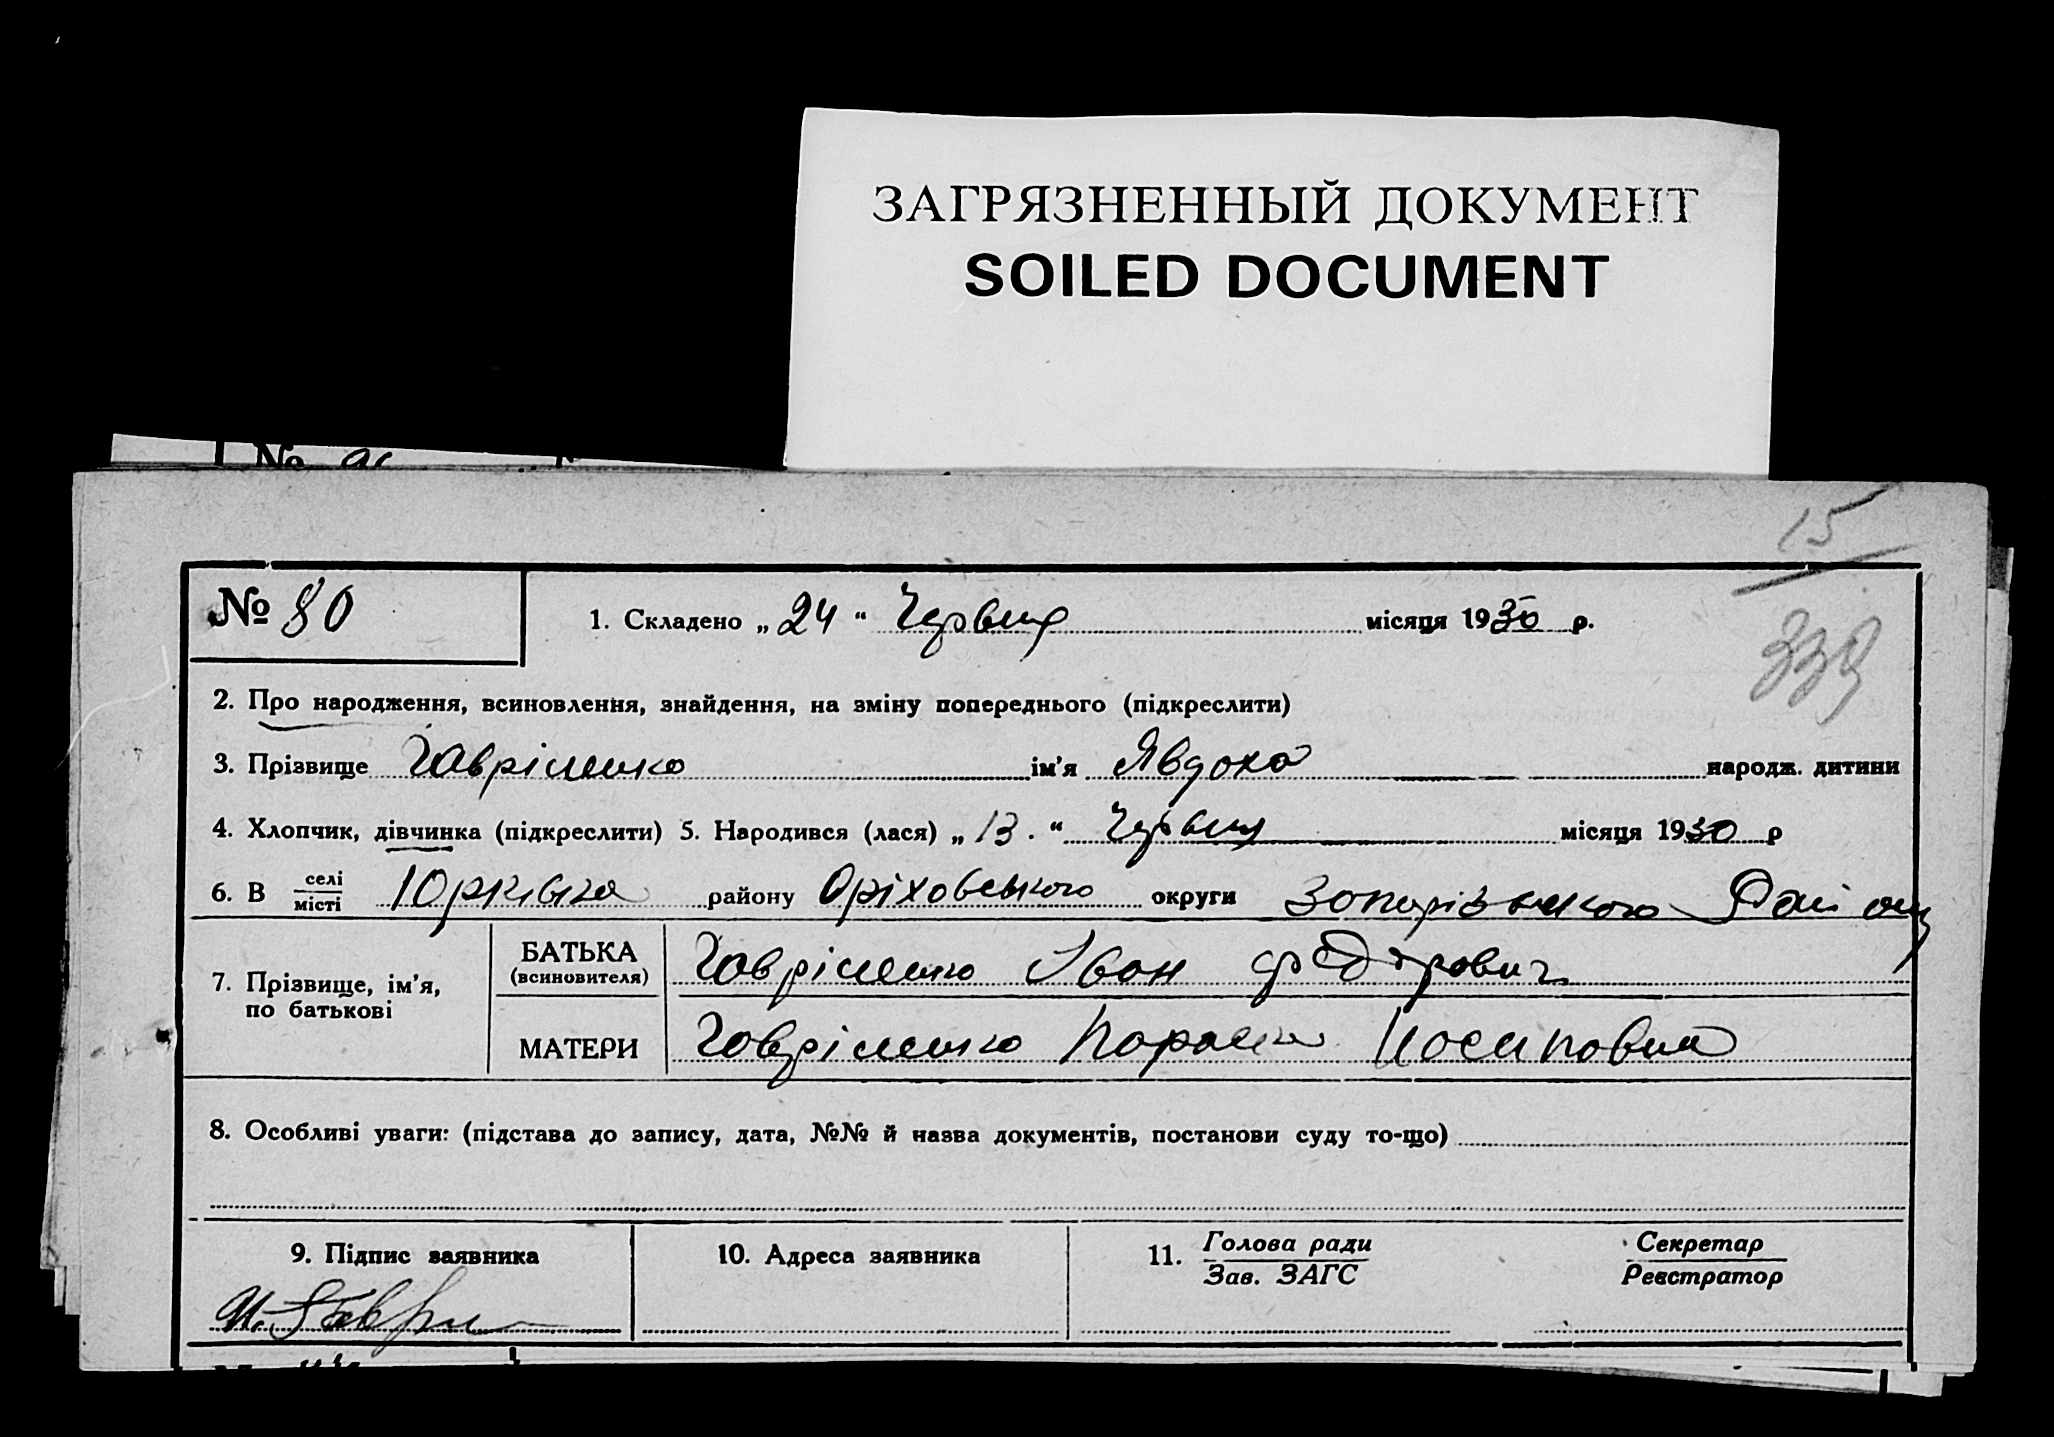 ЗАГРЯЗНЕННЫЙ ДОКУМЕНТ
SOILED DOCUMENT
15
339
№ 80
1. Складено „ 24 “ Червня місяця 1930 р.
2. Про народження, всиновлення, знайдення, на зміну попереднього (підкреслити)
3. Прізвище Гавріленко ім’я Явдоха народж. дитини
4. Хлопчик, дівчинка (підкреслити) 5. Народився (лася) „ 13. “ Червня місяця 1930 р
6. В селі місті Юрківка району Оріховського округи Запорізького Району
7. Прізвище, ім’я, по батькові
БАТЬКА (всиновителя) Гавріленко Іван Федорович
МАТЕРИ Гавріленко Параска Йосиповна
8. Особливі уваги: (підстава до запису, дата, №№ й назва документів, постанови суду то-що)
9. Підпис заявника
10. Адреса заявника
11. Голова ради Зав. ЗАГС
Секретар Реєстратор
И. Гаври